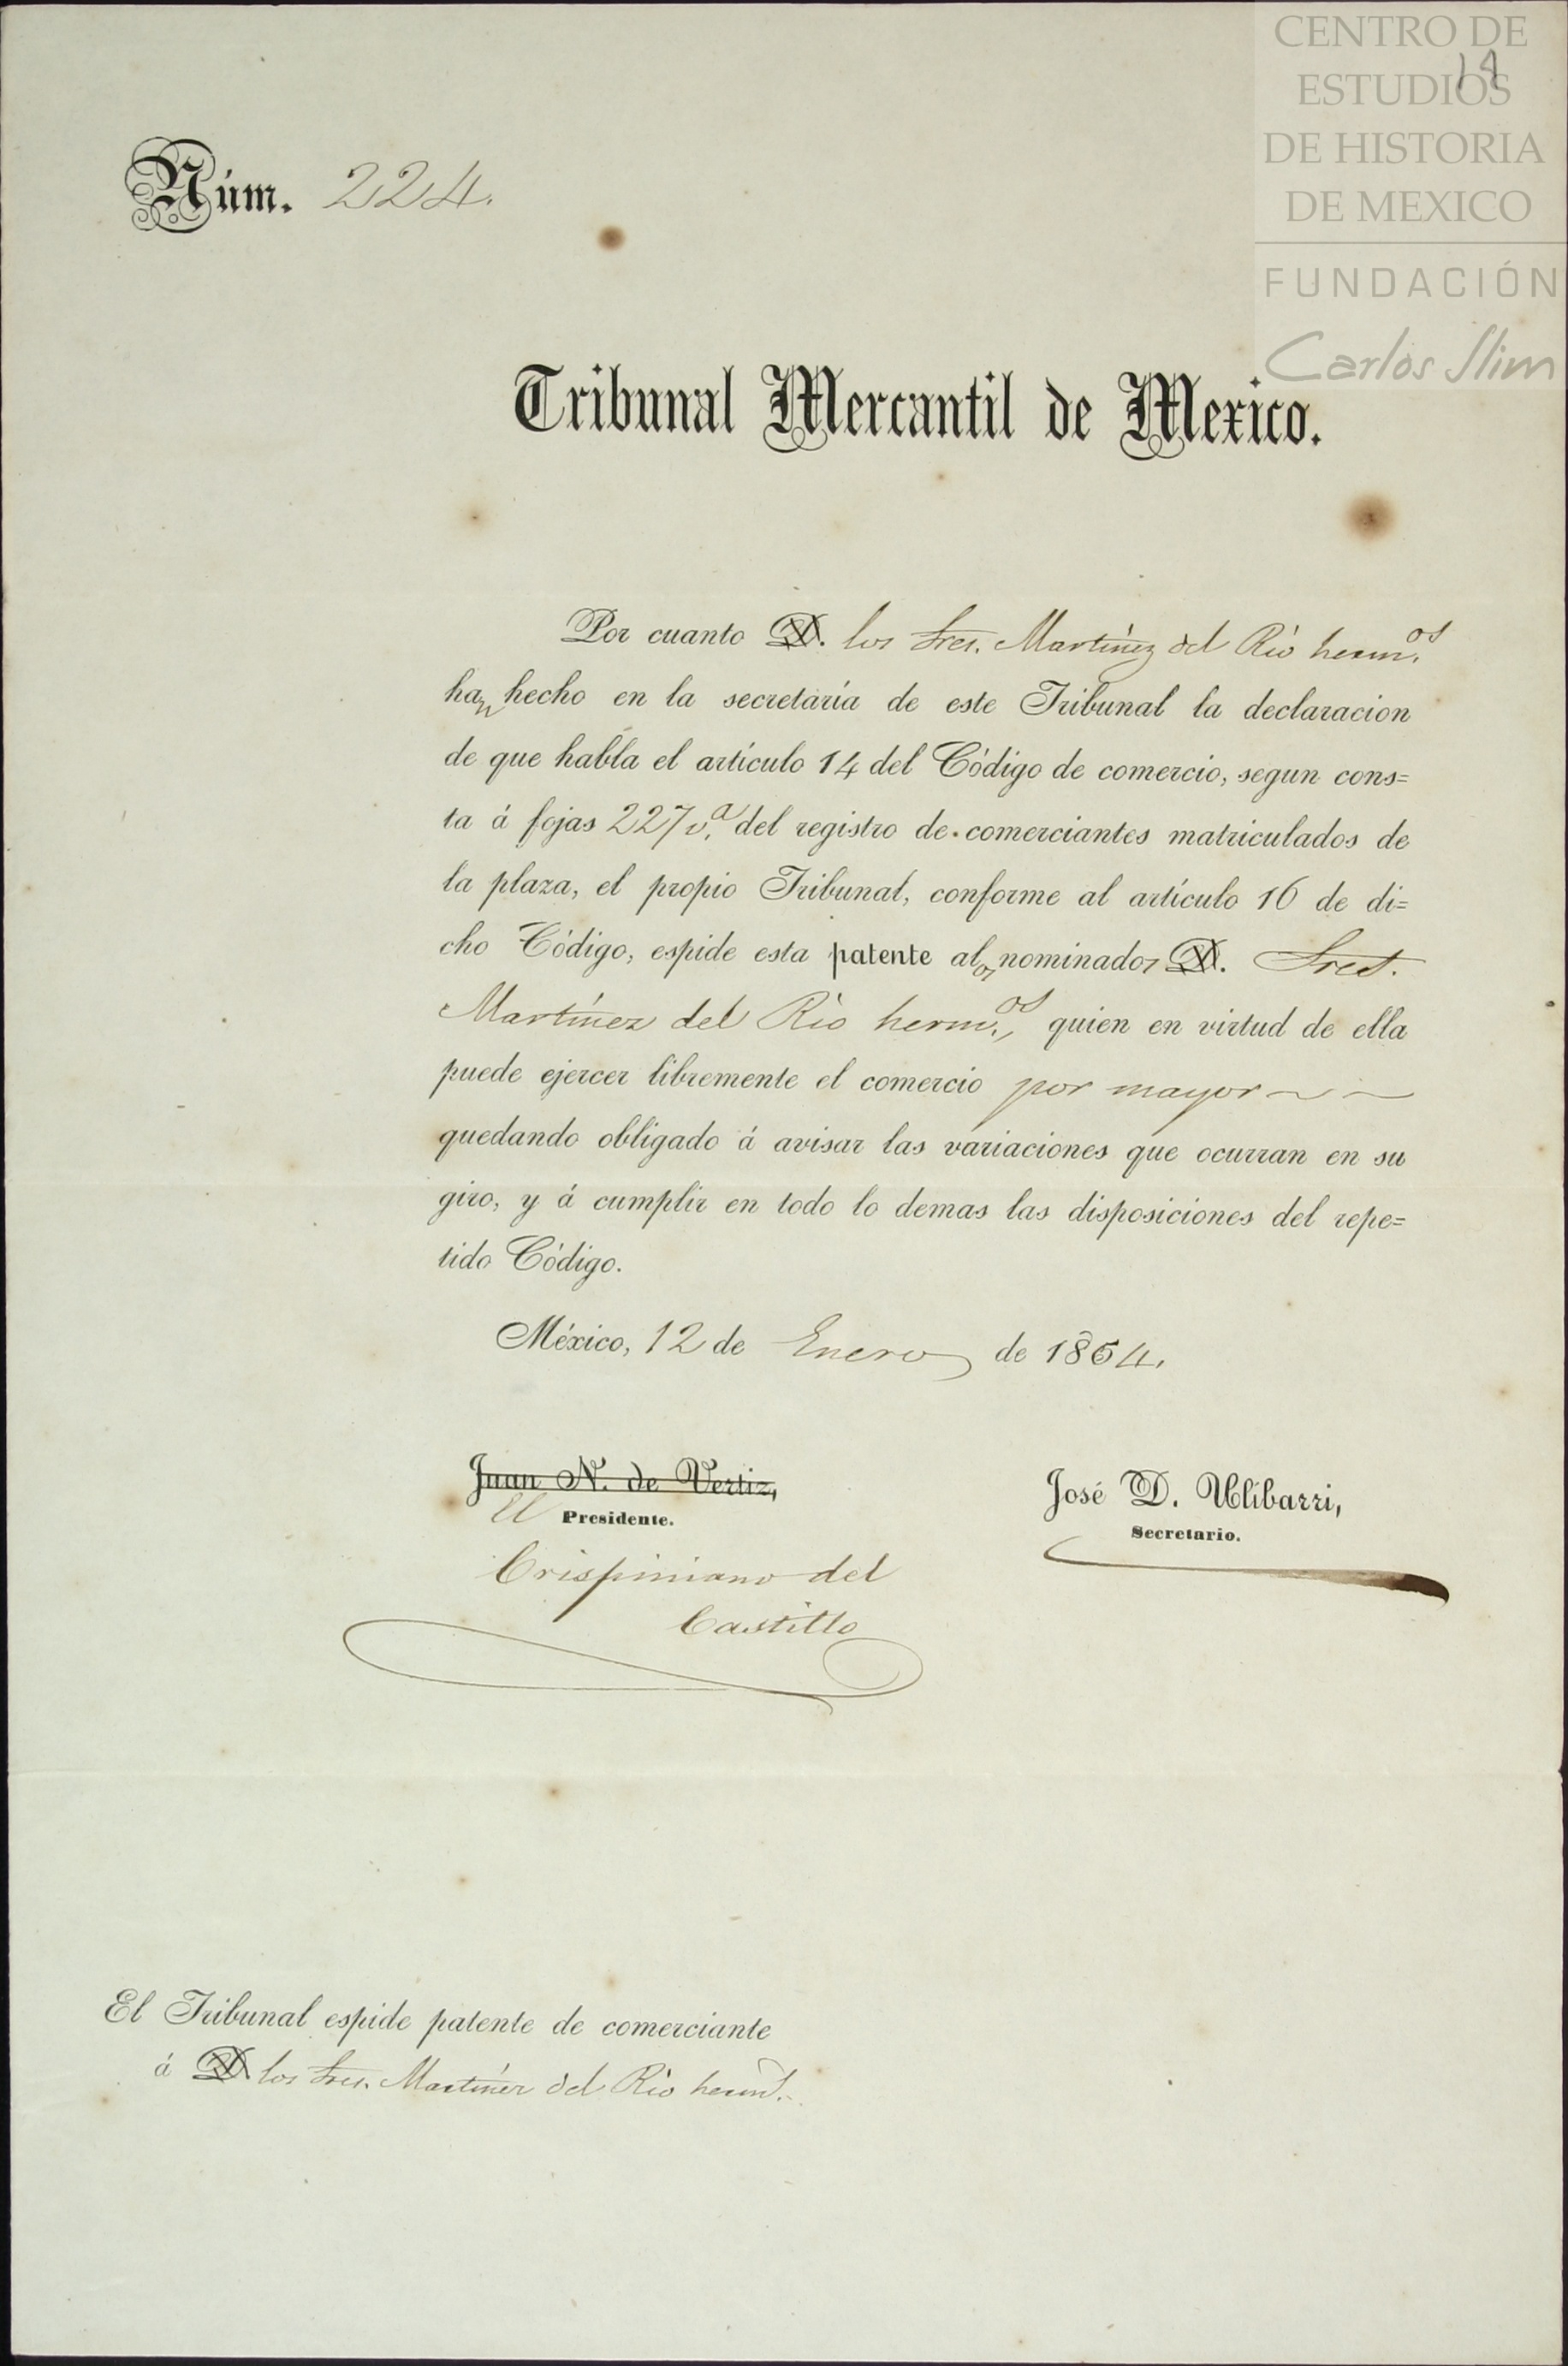 CENTRO DE
ESTUDIOS
DE HISTORIA
DE MEXICO
FUNDACIÓN
Carlos Slim
14
Núm. 224.
Tribunal Mercantil de Mexico.
Por cuanto D. los Sres. Martínez del Río herm.os
han hecho en la secretaría de este Tribunal la declaracion
de que habla el artículo 14 del Código de comercio, segun cons=
ta á fojas 227 v.a del registro de comerciantes matriculados de
la plaza, el propio Tribunal, conforme al artículo 16 de di=
cho Código, espide esta patente a los nominados D. Sres.
Martínez del Río herm.os, quien en virtud de ella
puede ejercer libremente el comercio por mayor
quedando obligado á avisar las variaciones que ocurran en su
giro, y á cumplir en todo lo demas las disposiciones del repe=
tido Código.
México, 12 de Enero de 1864.
Juan N. de Vertiz,
El Presidente.
Crispiniano del
Castillo
José D. Ulibarri,
Secretario.
El Tribunal espide patente de comerciante
á D. los Sres. Martínez del Río herms.